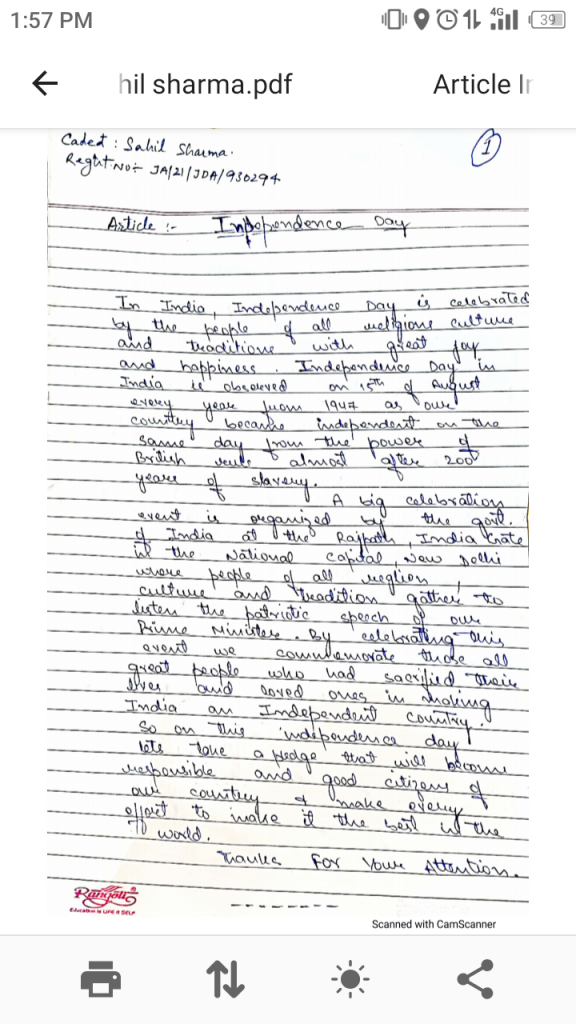 1:57 PM 4G 39
hil sharma.pdf Article In
Cadet : Sahil Sharma.
Reght No:- JA/21/JDA/930294
1
Article :- Independence Day
In India, Independence Day is celebrated
by the people of all religions culture
and traditions with great joy
and happiness. Independence Day in
India is observed on 15th of August
every year from 1947 as our
country became independent on the
same day from the power of
British rule almost after 200
years of slavery.
A big celebration
event is organized by the govt.
of India at the Rajpath, India Gate
in the National capital, New Delhi
where people of all religion,
culture and tradition gather to
listen the patriotic speech of our
Prime Minister. By celebrating this
event we commemorate those all
great people who had sacrified their
lives and loved ones in making
India an Independent country.
So on this independence day
lets take a pledge that will become
responsible and good citizens of
our country & make every
effort to make it the best in the
world.
Thanks For Your Attention.
Rangoli
Education is LIFE it SELF
Scanned with CamScanner